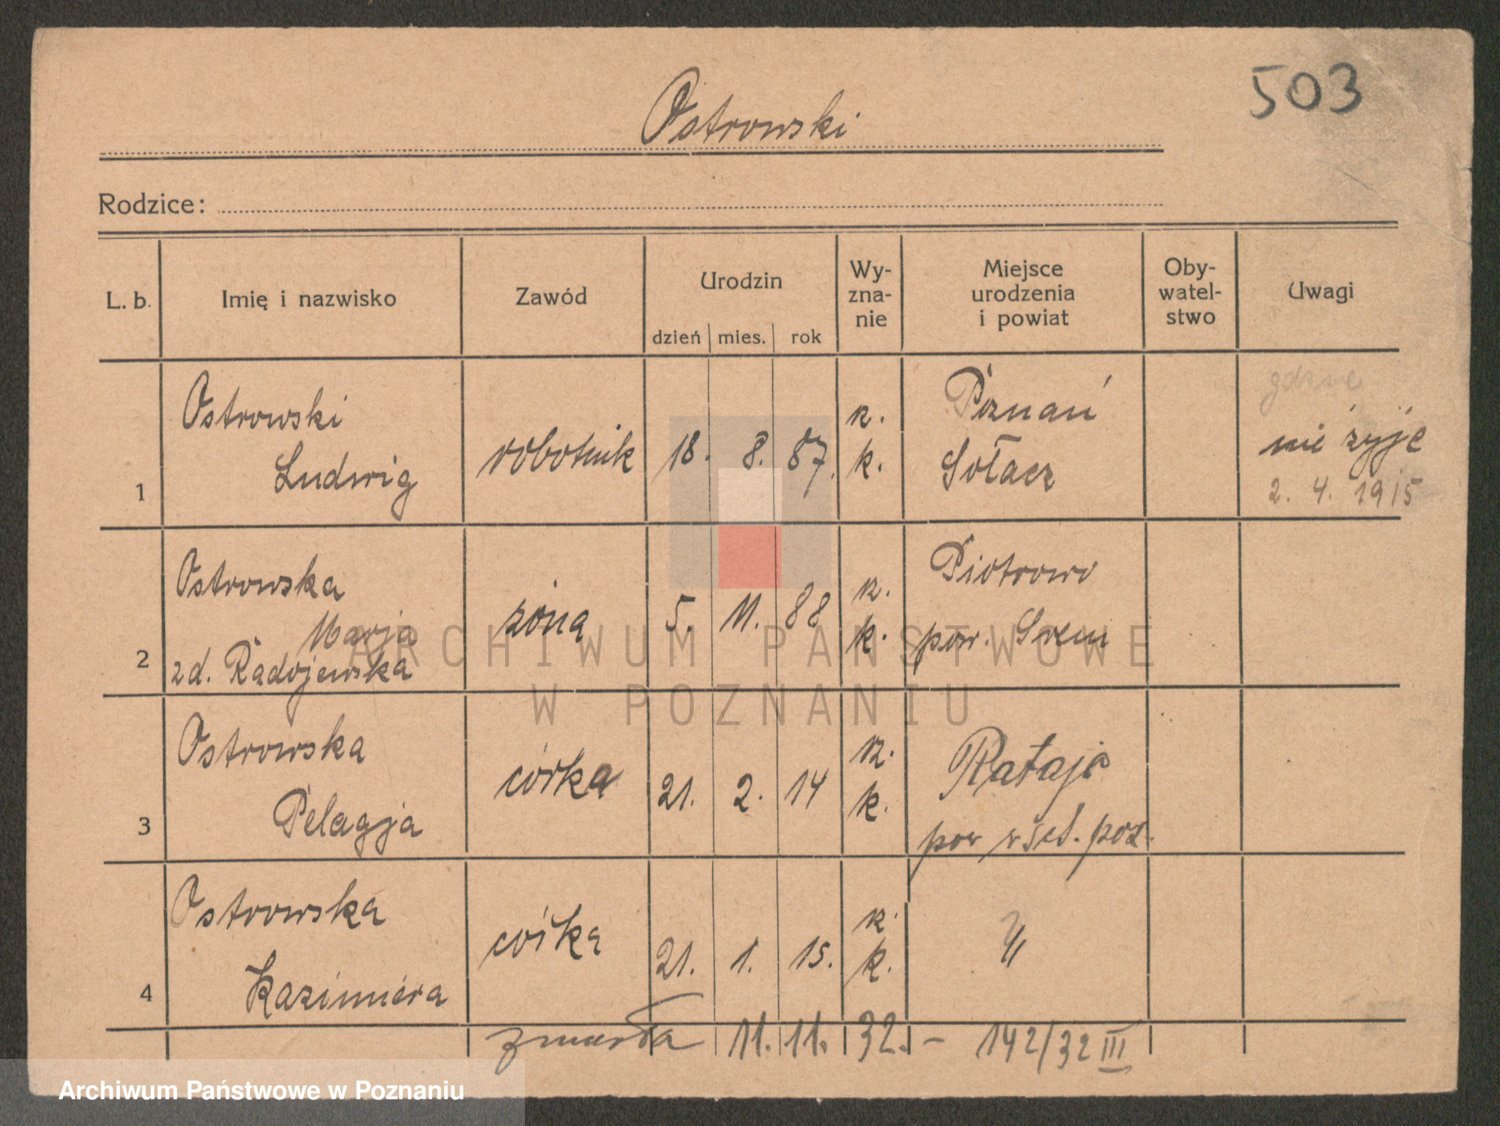 503
Ostrowski
Rodzice:
L. b. Imię i nazwisko Zawód Urodzin dzień mies. rok Wy-zna-nie Miejsce urodzenia i powiat Oby-watel-stwo Uwagi
1 Ostrowski Ludwig robotnik 18. 8. 87. rz. k. Poznań Sołacz nie żyje 2. 4. 1915
2 Ostrowska Marja zd. Radojewska żona 5. 11. 88 rz. k. Piotrowo pow. Śrem
3 Ostrowska Pelagja córka 21. 2. 14 rz. k. Rataje pow
4 Ostrowska Kazimiera córka 21. 1. 15. rz. k. "
zmarła 11. 11. 32. - 142/32 III
ARCHIWUM PAŃSTWOWE
W POZNANIU
Archiwum Państwowe w Poznaniu